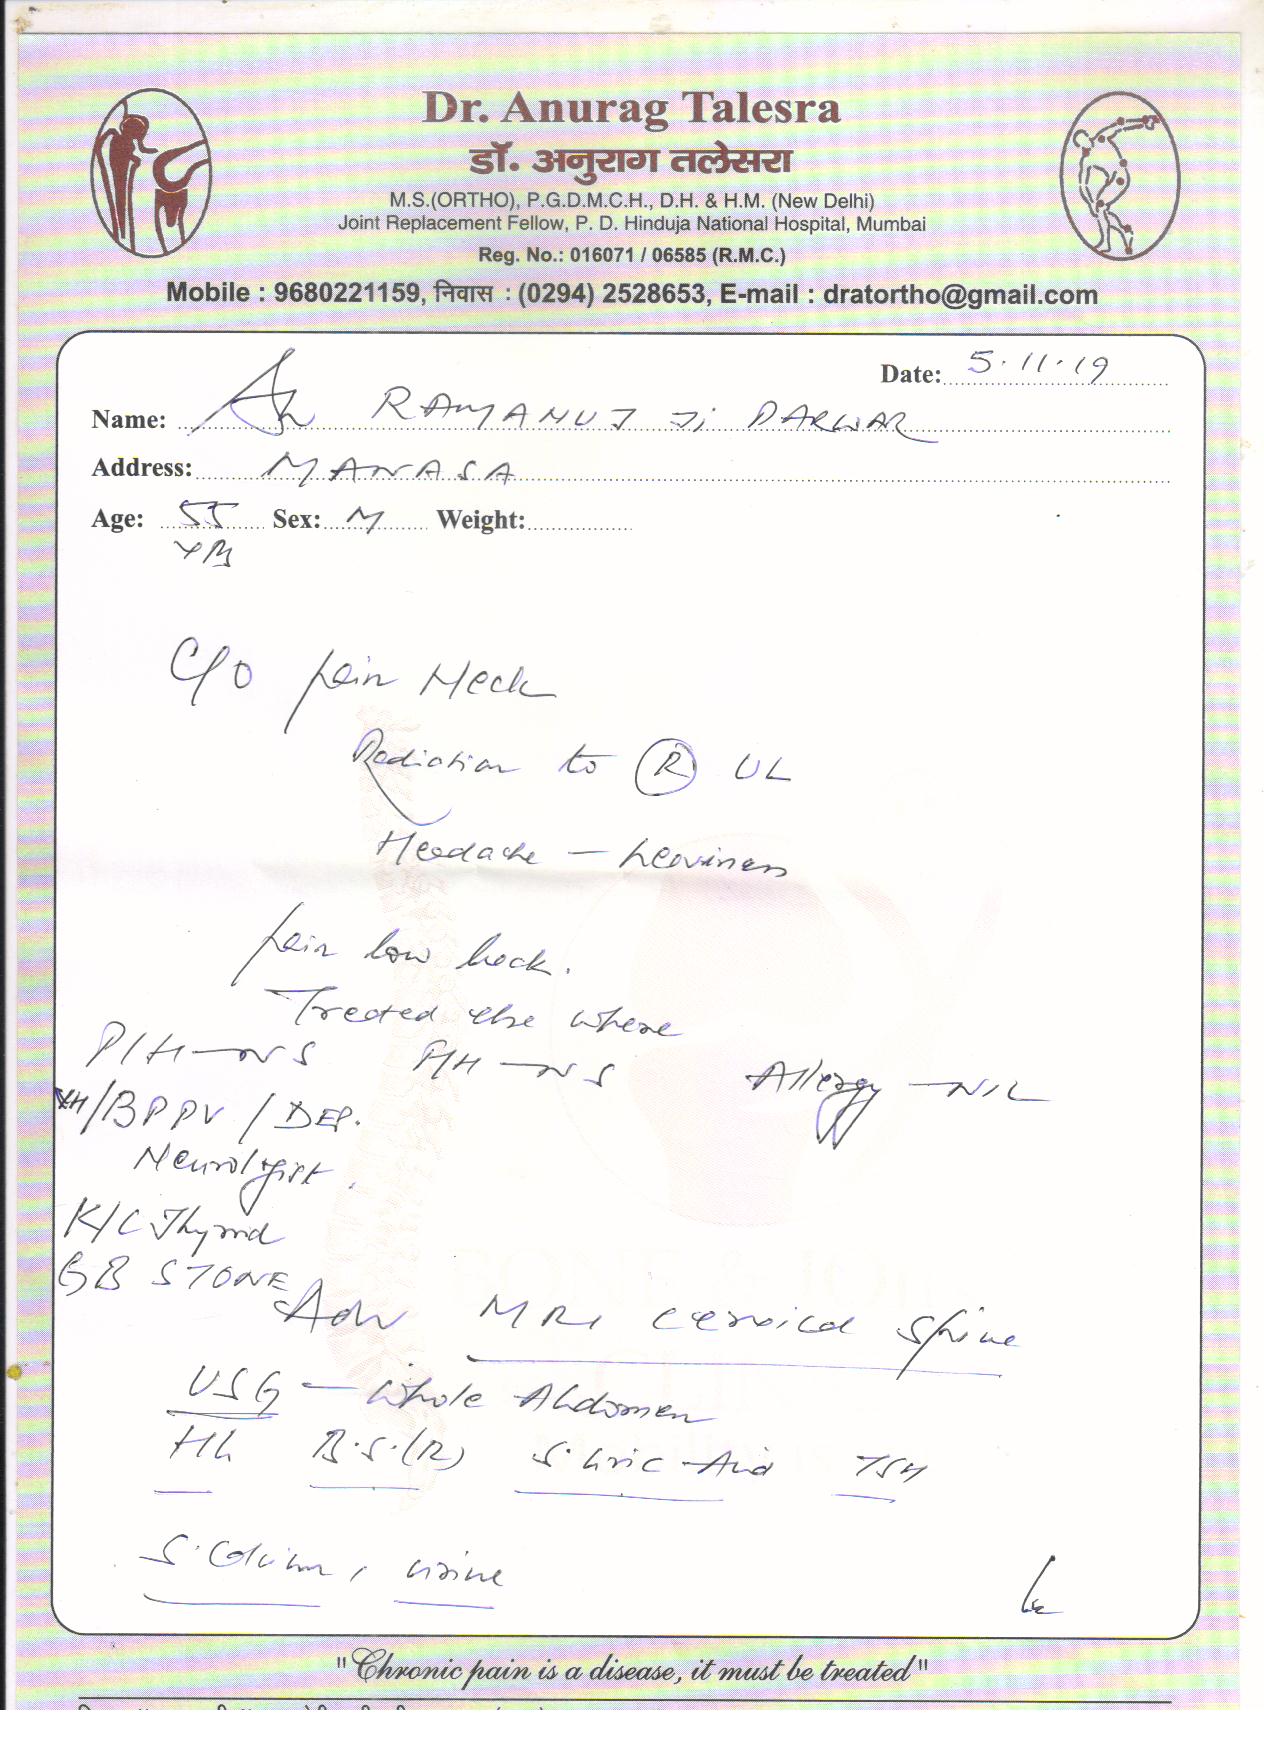 Dr. Anurag Talesra
डॉ. अनुराग तलेसरा
M.S.(ORTHO), P.G.D.M.C.H., D.H. & H.M. (New Delhi)
Joint Replacement Fellow, P. D. Hinduja National Hospital, Mumbai
Reg. No.: 016071 / 06585 (R.M.C.)
Mobile : 9680221159, निवास : (0294) 2528653, E-mail : dratortho@gmail.com
Date: 5.11.19
Name: RAMANUJ Ji DARWAR
Address: MANASA
Age: 55 Sex: M Weight:
YRS
C/O pain Neck
Radiation to R UL
Headache - heaviness
pain low back.
Treated else where
P/H - NS F/H - NS Allergy - NIL
/BPPV / DEP.
Neurologist.
K/C Thyroid
GB STONE
Adv MRI cervical spine
USG - whole Abdomen
Hb B.S.(R) S. Uric Acid TSH
S. Calcium, urine
"Chronic pain is a disease, it must be treated"